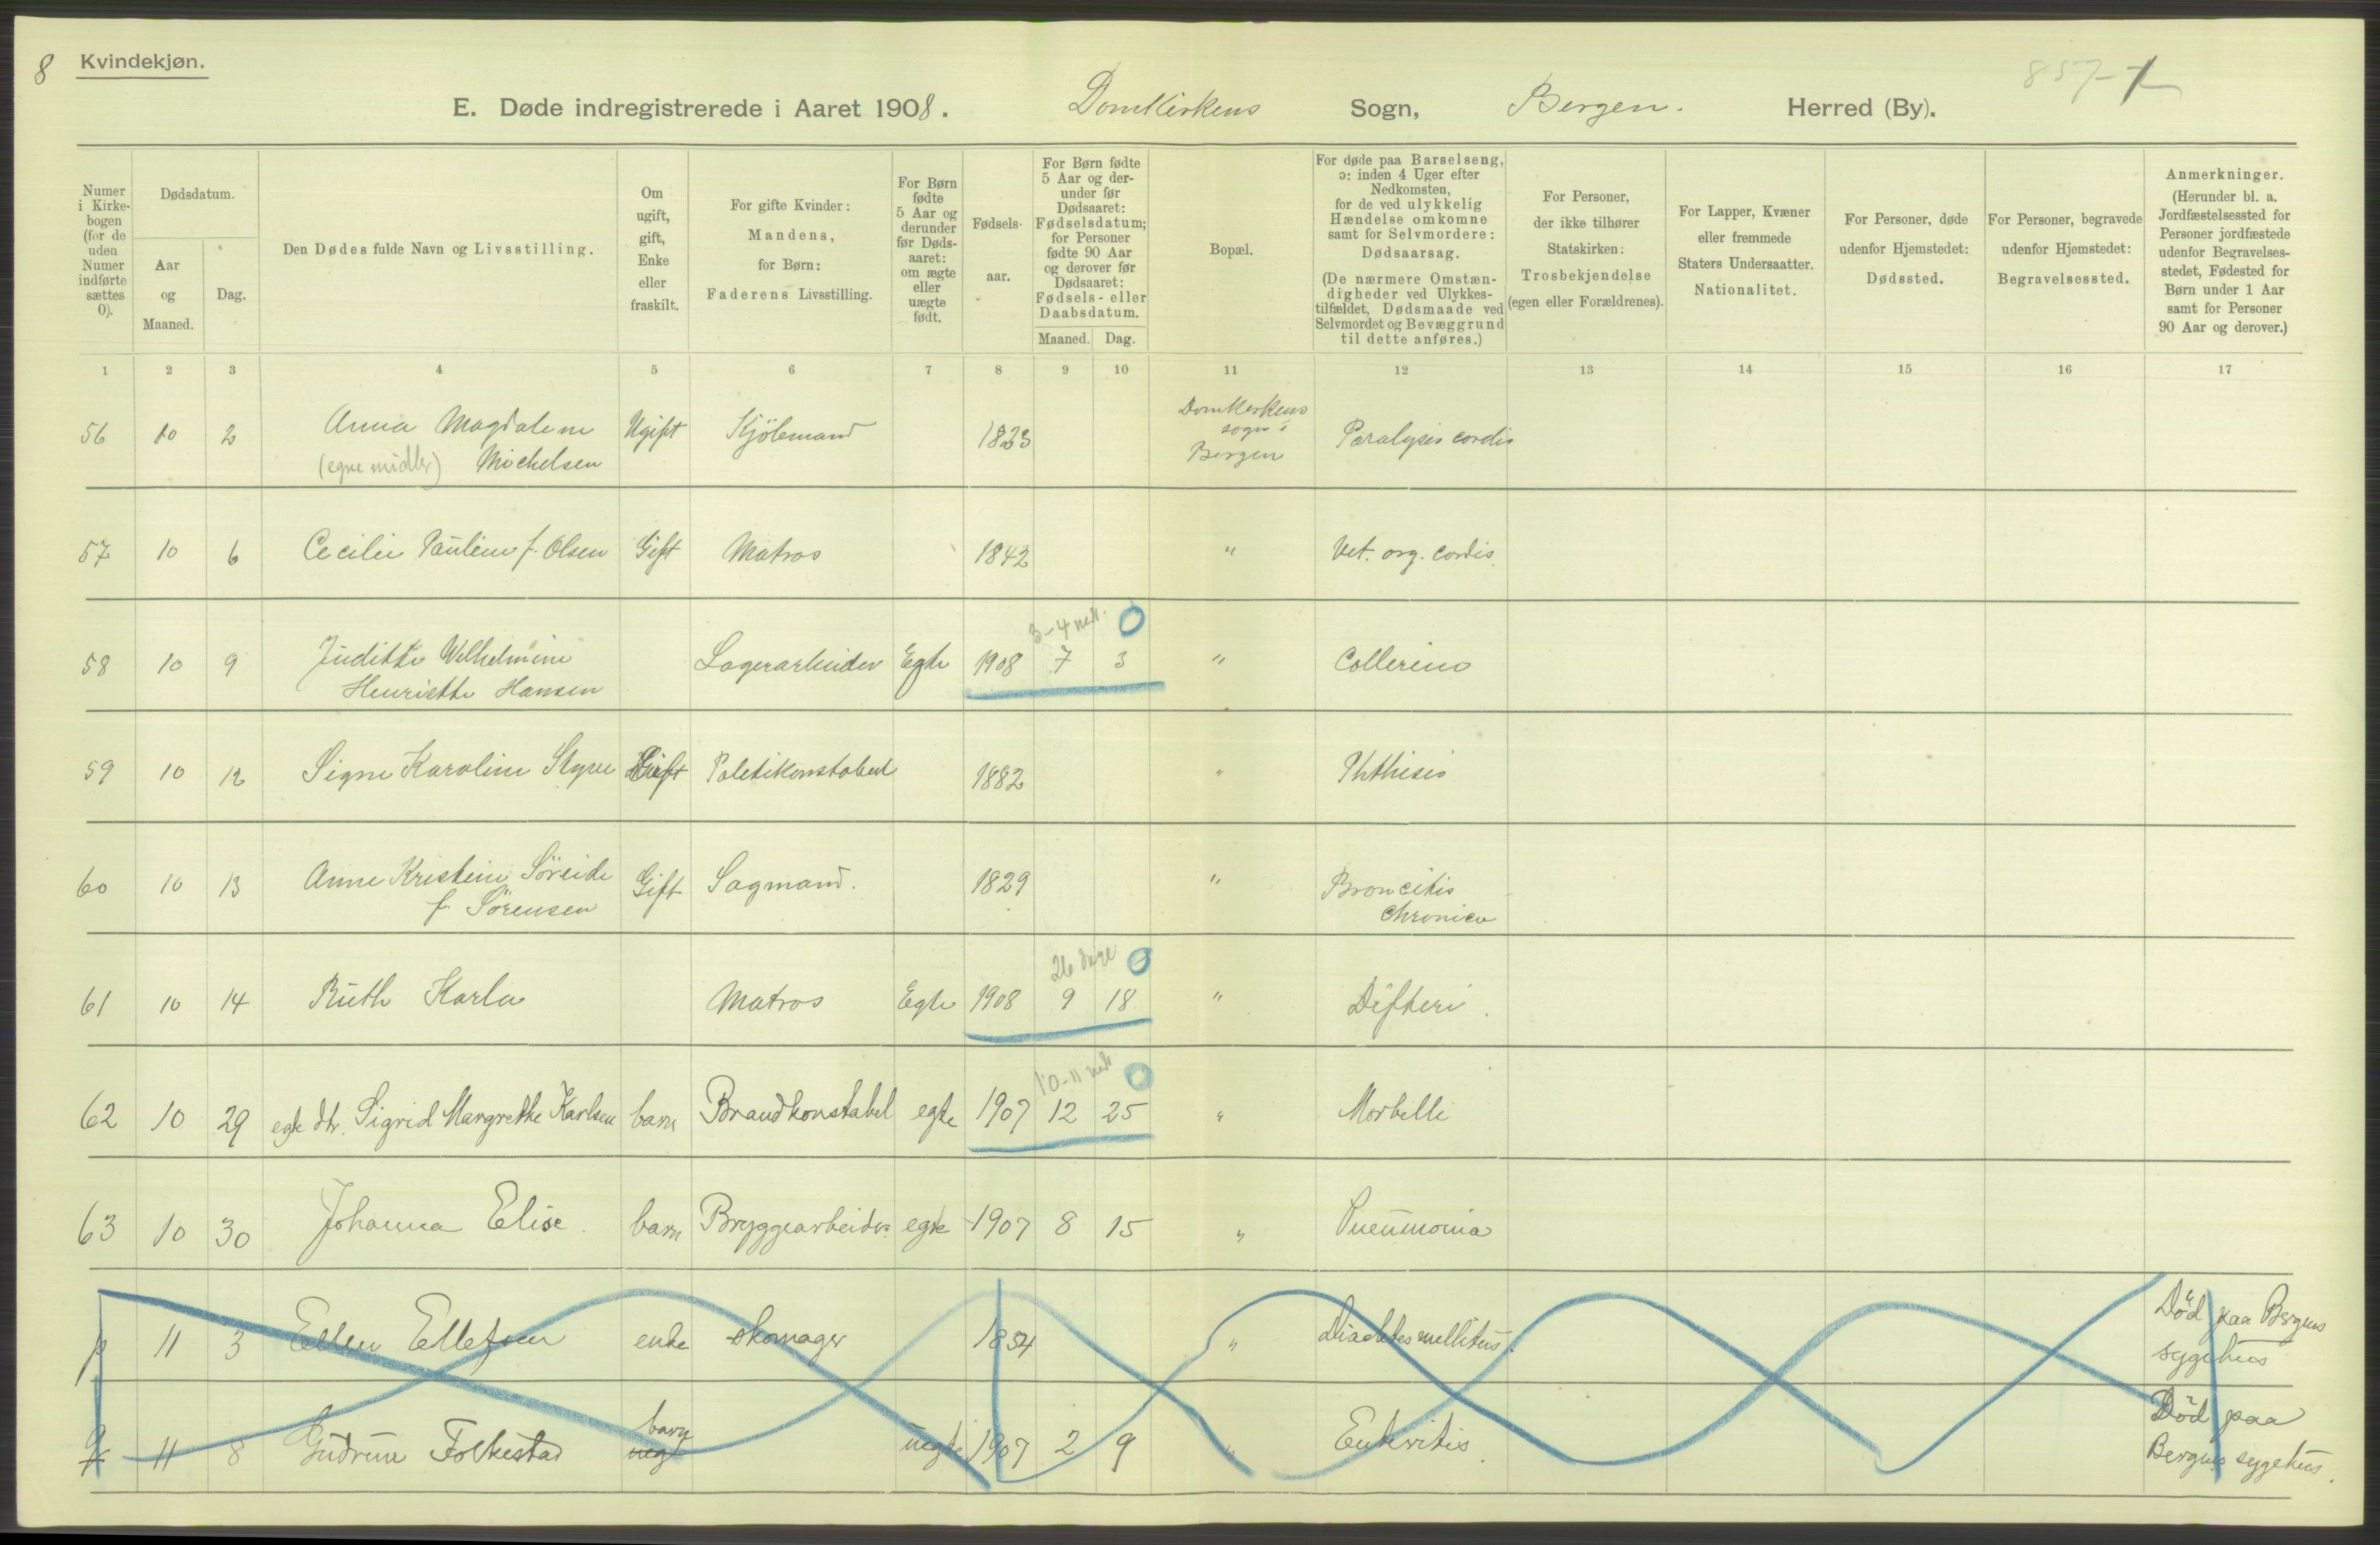 8 Kvindekjøn.
857-1
E. Døde indregistrerede i Aaret 1908. Domkirkens Sogn, Bergen. Herred (By).
Numer i Kirke-bogen (for de uden Numer indførte sættes 0).
Dødsdatum.
Aar og Maaned.
Dag.
Den Dødes fulde Navn og Livsstilling.
Om ugift, gift, Enke eller fraskilt.
For gifte Kvinder: Mandens, for Børn: Faderens Livsstilling.
For Børn fødte 5 Aar og derunder før Døds-aaret: om ægte eller uægte født.
Fødsels-aar.
For Børn fødte 5 Aar og der-under før Dødsaaret: Fødselsdatum; for Personer fødte 90 Aar og derover før Dødsaaret: Fødsels- eller Daabsdatum.
Maaned. Dag.
Bopæl.
For døde paa Barselseng, ɔ: inden 4 Uger efter Nedkomsten, for de ved ulykkelig Hændelse omkomne samt for Selvmordere: Dødsaarsag. (De nærmere Omstæn-digheder ved Ulykkes-tilfældet, Dødsmaade ved Selvmordet og Bevæggrund til dette anføres.)
For Personer, der ikke tilhører Statskirken: Trosbekjendelse (egen eller Forældrenes).
For Lapper, Kvæner eller fremmede Staters Undersaatter. Nationalitet.
For Personer, døde udenfor Hjemstedet: Dødssted.
For Personer, begravede udenfor Hjemstedet: Begravelsessted.
Anmerkninger. (Herunder bl. a. Jordfæstelsessted for Personer jordfæstede udenfor Begravelses-stedet, Fødested for Børn under 1 Aar samt for Personer 90 Aar og derover.)
1 2 3 4 5 6 7 8 9 10 11 12 13 14 15 16 17
56 10 2 Anna Magdalene Ugift Kjölemand 1823 Domkerkens sogn i Bergen Paralysis cordis
(egne midler) Michelsen
57 10 6 Cecilie Pauline f. Olsen Gift Matros 1842 " Vet. org. cordis.
3-4 mdr. 0
58 10 9 Judithe Wilhelmine Lagerarbeider Egte 1908 7 3 " Collerino
Henriette Hansen
59 10 12 Signe Karoline Styve Gift Politikonstabel 1882 " Phthisis
60 10 13 Anne Kristine Söreide Gift Sagmand. 1829 " Broncitis
f. Sörensen Chronica
26 dage 0
61 10 14 Ruth Karla Matros Egte 1908 9 18 " Difteri.
10-11 mdr 0
62 10 29 egte dtr. Sigrid Margrethe Karlsen barn Brandkonstabel egte 1907 12 25 " Morbilli
63 10 30 Johanna Elise. barn Bryggearbeider egte 1907 8 15 " Pneumonia
p 11 3 Ellen Ellefsen enke skomager 1854 " Diabetes mellitus. Död paa Bergens sygehus
barn
q 11 8 Gudrun Folkestad uegt uegte 1907 2 9 " Enteritis. Död paa Bergens sygehus.